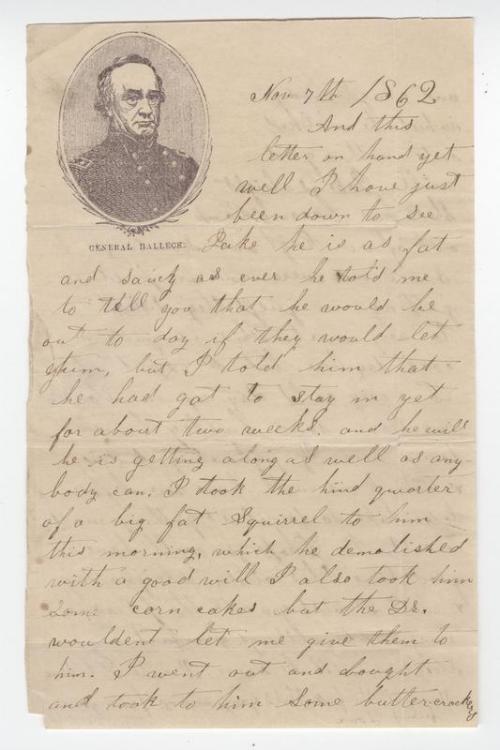 Nov 7th 1862
And this
letter on hand yet
well I have just
been down to see
GENERAL HALLECK.
Jake he is as fat
and saucy as ever he told me
to tell you that he would be
out to day if they would let
him, but I told him that
he had got to stay in yet
for about two weeks. and he will
he is getting along as well as any
body can. I took the hind quarter
of a big fat Squirrel to him
this morning, which he demolished
with a good will I also took him
some corn cakes but the Dr.
wouldent let me give them to
him. I went out and bought
and took to him some butter-crackers